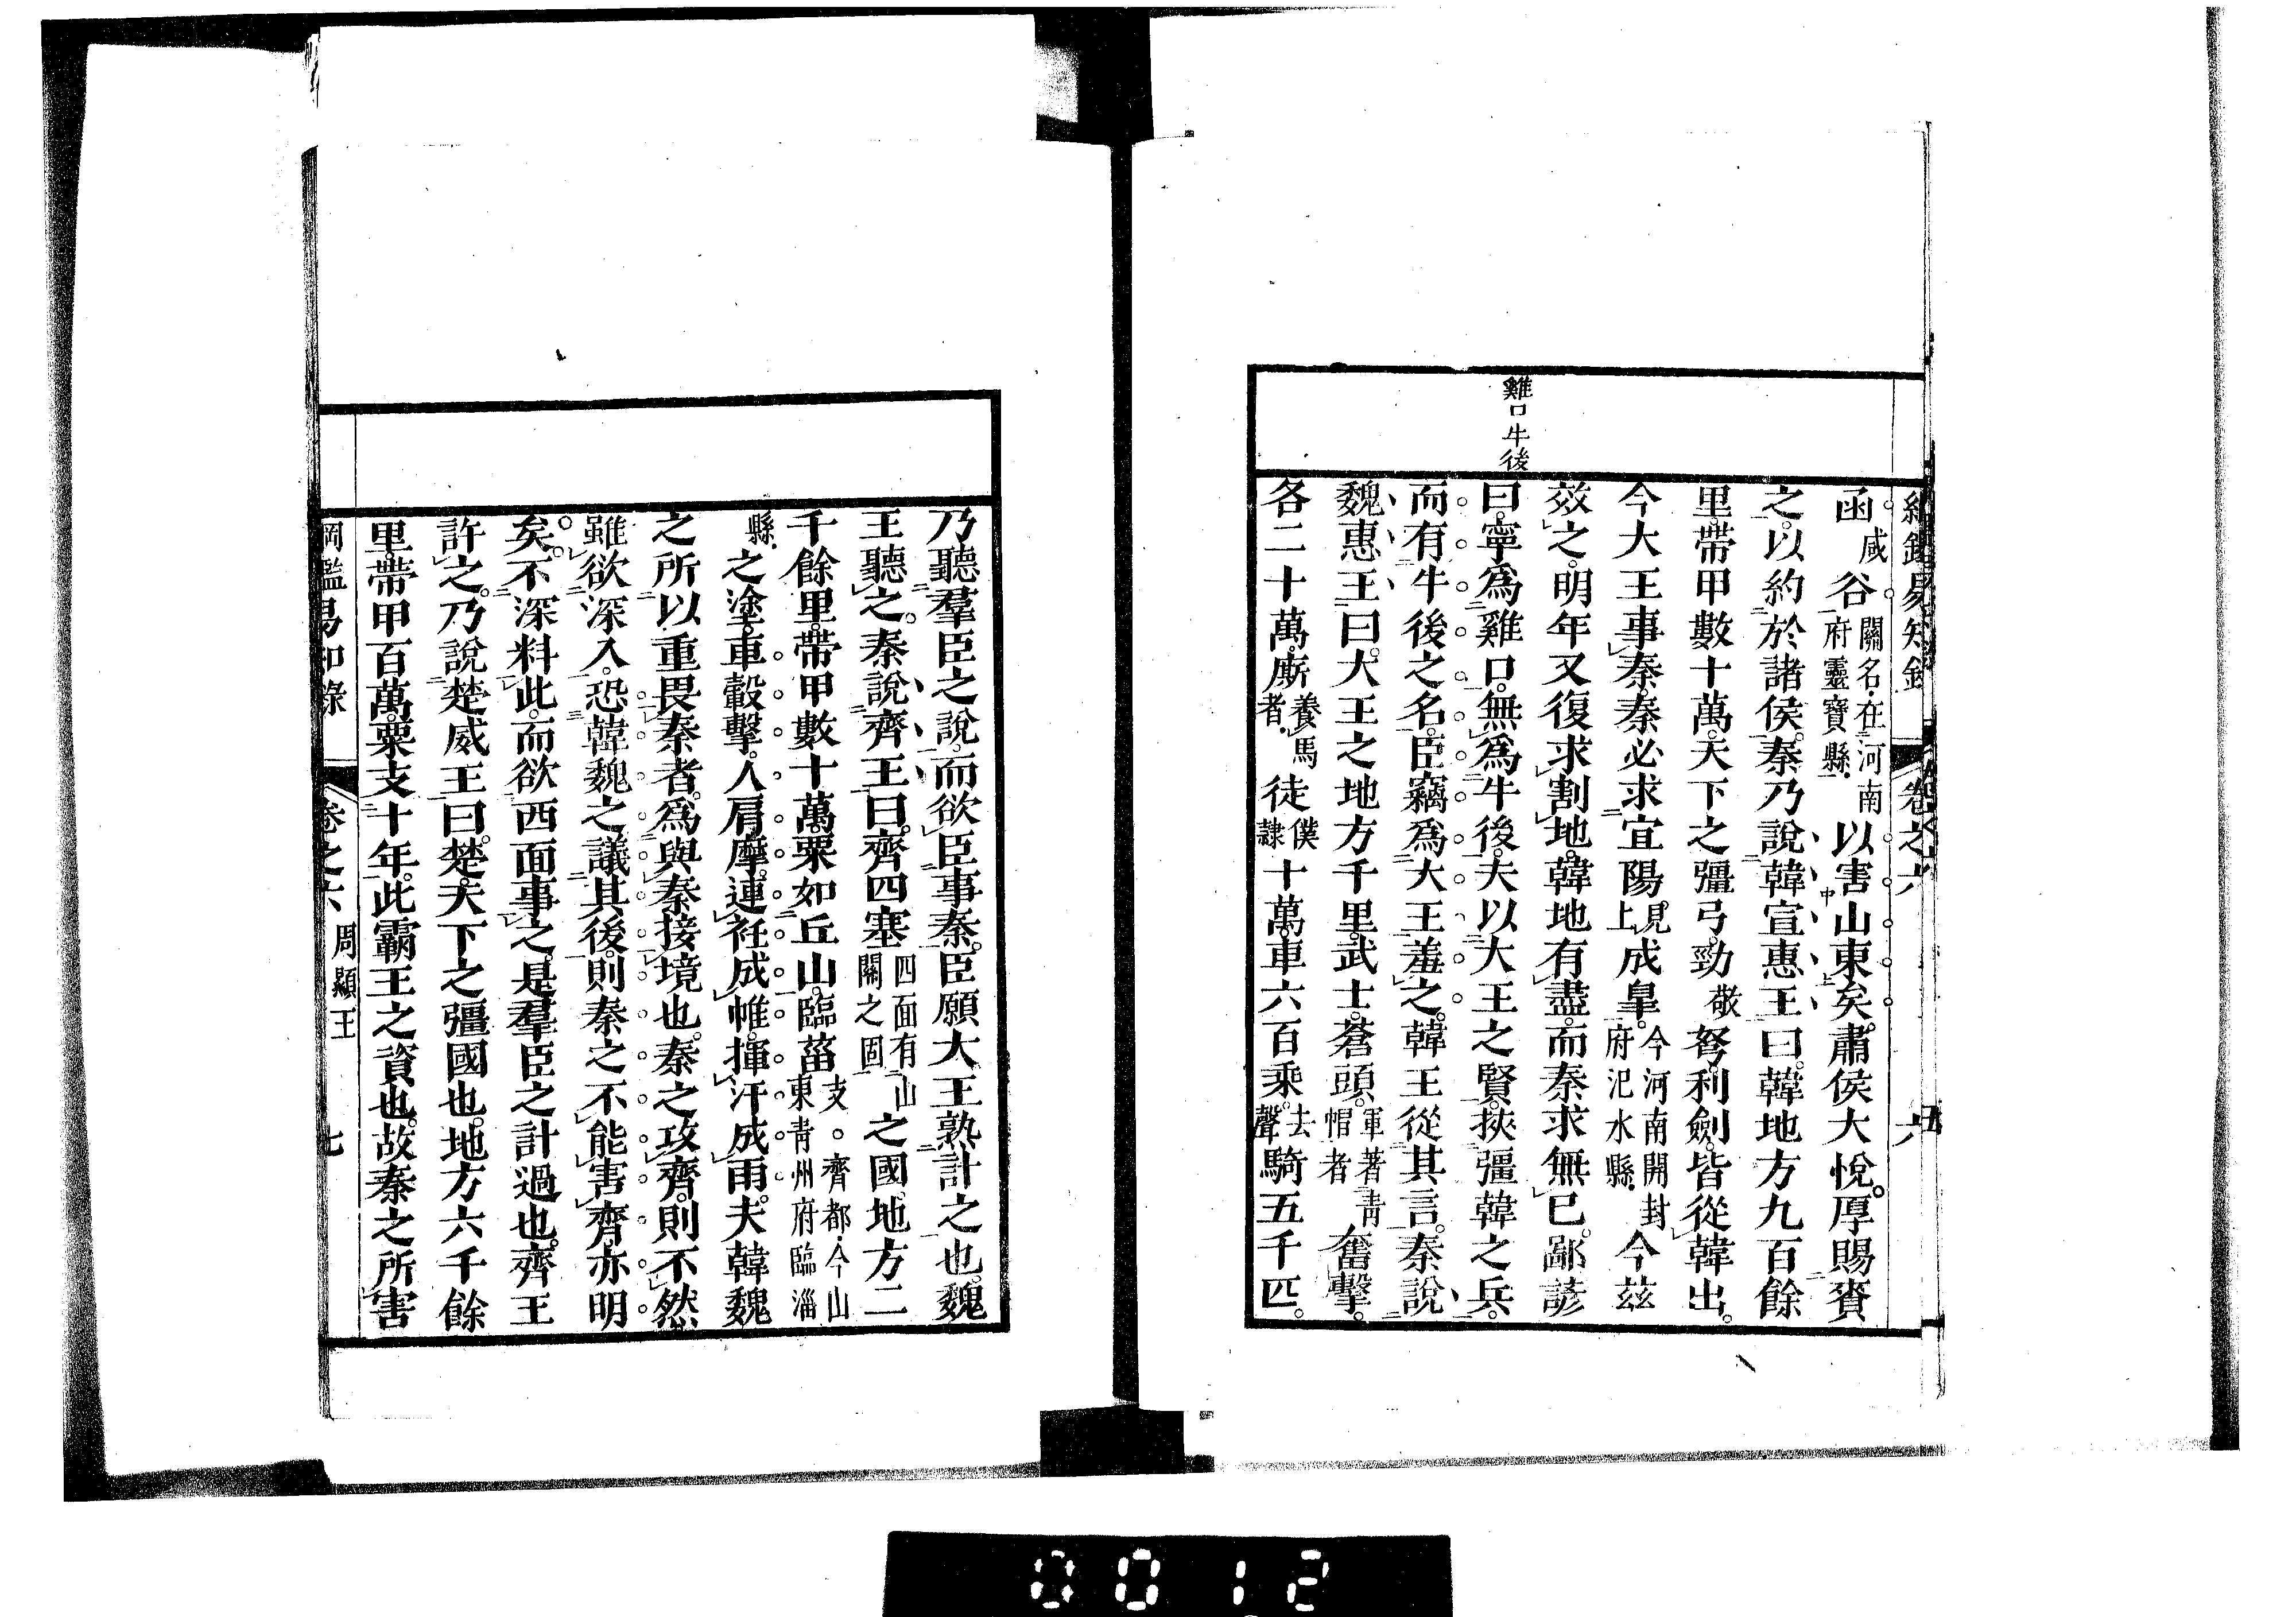 綱鑑易知錄 卷之六 六
雞口牛後
函咸谷關名在河南府靈寶縣以害山東矣。肅侯大悅。厚賜賚
之。以約於諸侯。秦乃說韓宣惠王曰。韓地方九百餘
里。帶甲數十萬。天下之彊弓。勁敬弩。利劍。皆從韓出。
今大王事秦。秦必求宜陽。見上成皐。今河南開封府汜水縣今茲
效之。明年又復求割地。韓地有盡。而秦求無已。鄙諺
曰。寧爲雞口。無爲牛後。夫以大王之賢。挾彊韓之兵。
而有牛後之名。臣竊爲大王羞之。韓王從其言。秦說
魏惠王曰。大王之地方千里。武士。蒼頭。軍著靑帽者奮擊。
各二十萬。廝養馬者徒僕隷十萬。車六百乘。去聲騎五千匹。
乃聽羣臣之說。而欲臣事秦。臣願大王熟計之也。魏
王聽之。秦說齊王曰。齊四塞四面有山關之固之國。地方二
千餘里。帶甲數十萬。粟如丘山。臨菑支。齊都今山東靑州府臨淄
縣之塗。車轂擊。人肩摩。連衽成帷。揮汗成雨。夫韓魏
之所以重畏秦者。爲與秦接境也。秦之攻齊。則不然。
雖欲深入。恐韓魏之議其後。則秦之不能害齊。亦明
矣。不深料此。而欲西面事之。是羣臣之計過也。齊王
許之。乃說楚威王曰。楚。天下之彊國也。地方六千餘
里。帶甲百萬。粟支十年。此霸王之資也。故秦之所害
綱鑑易知錄 卷之六 周顯王 七
0012